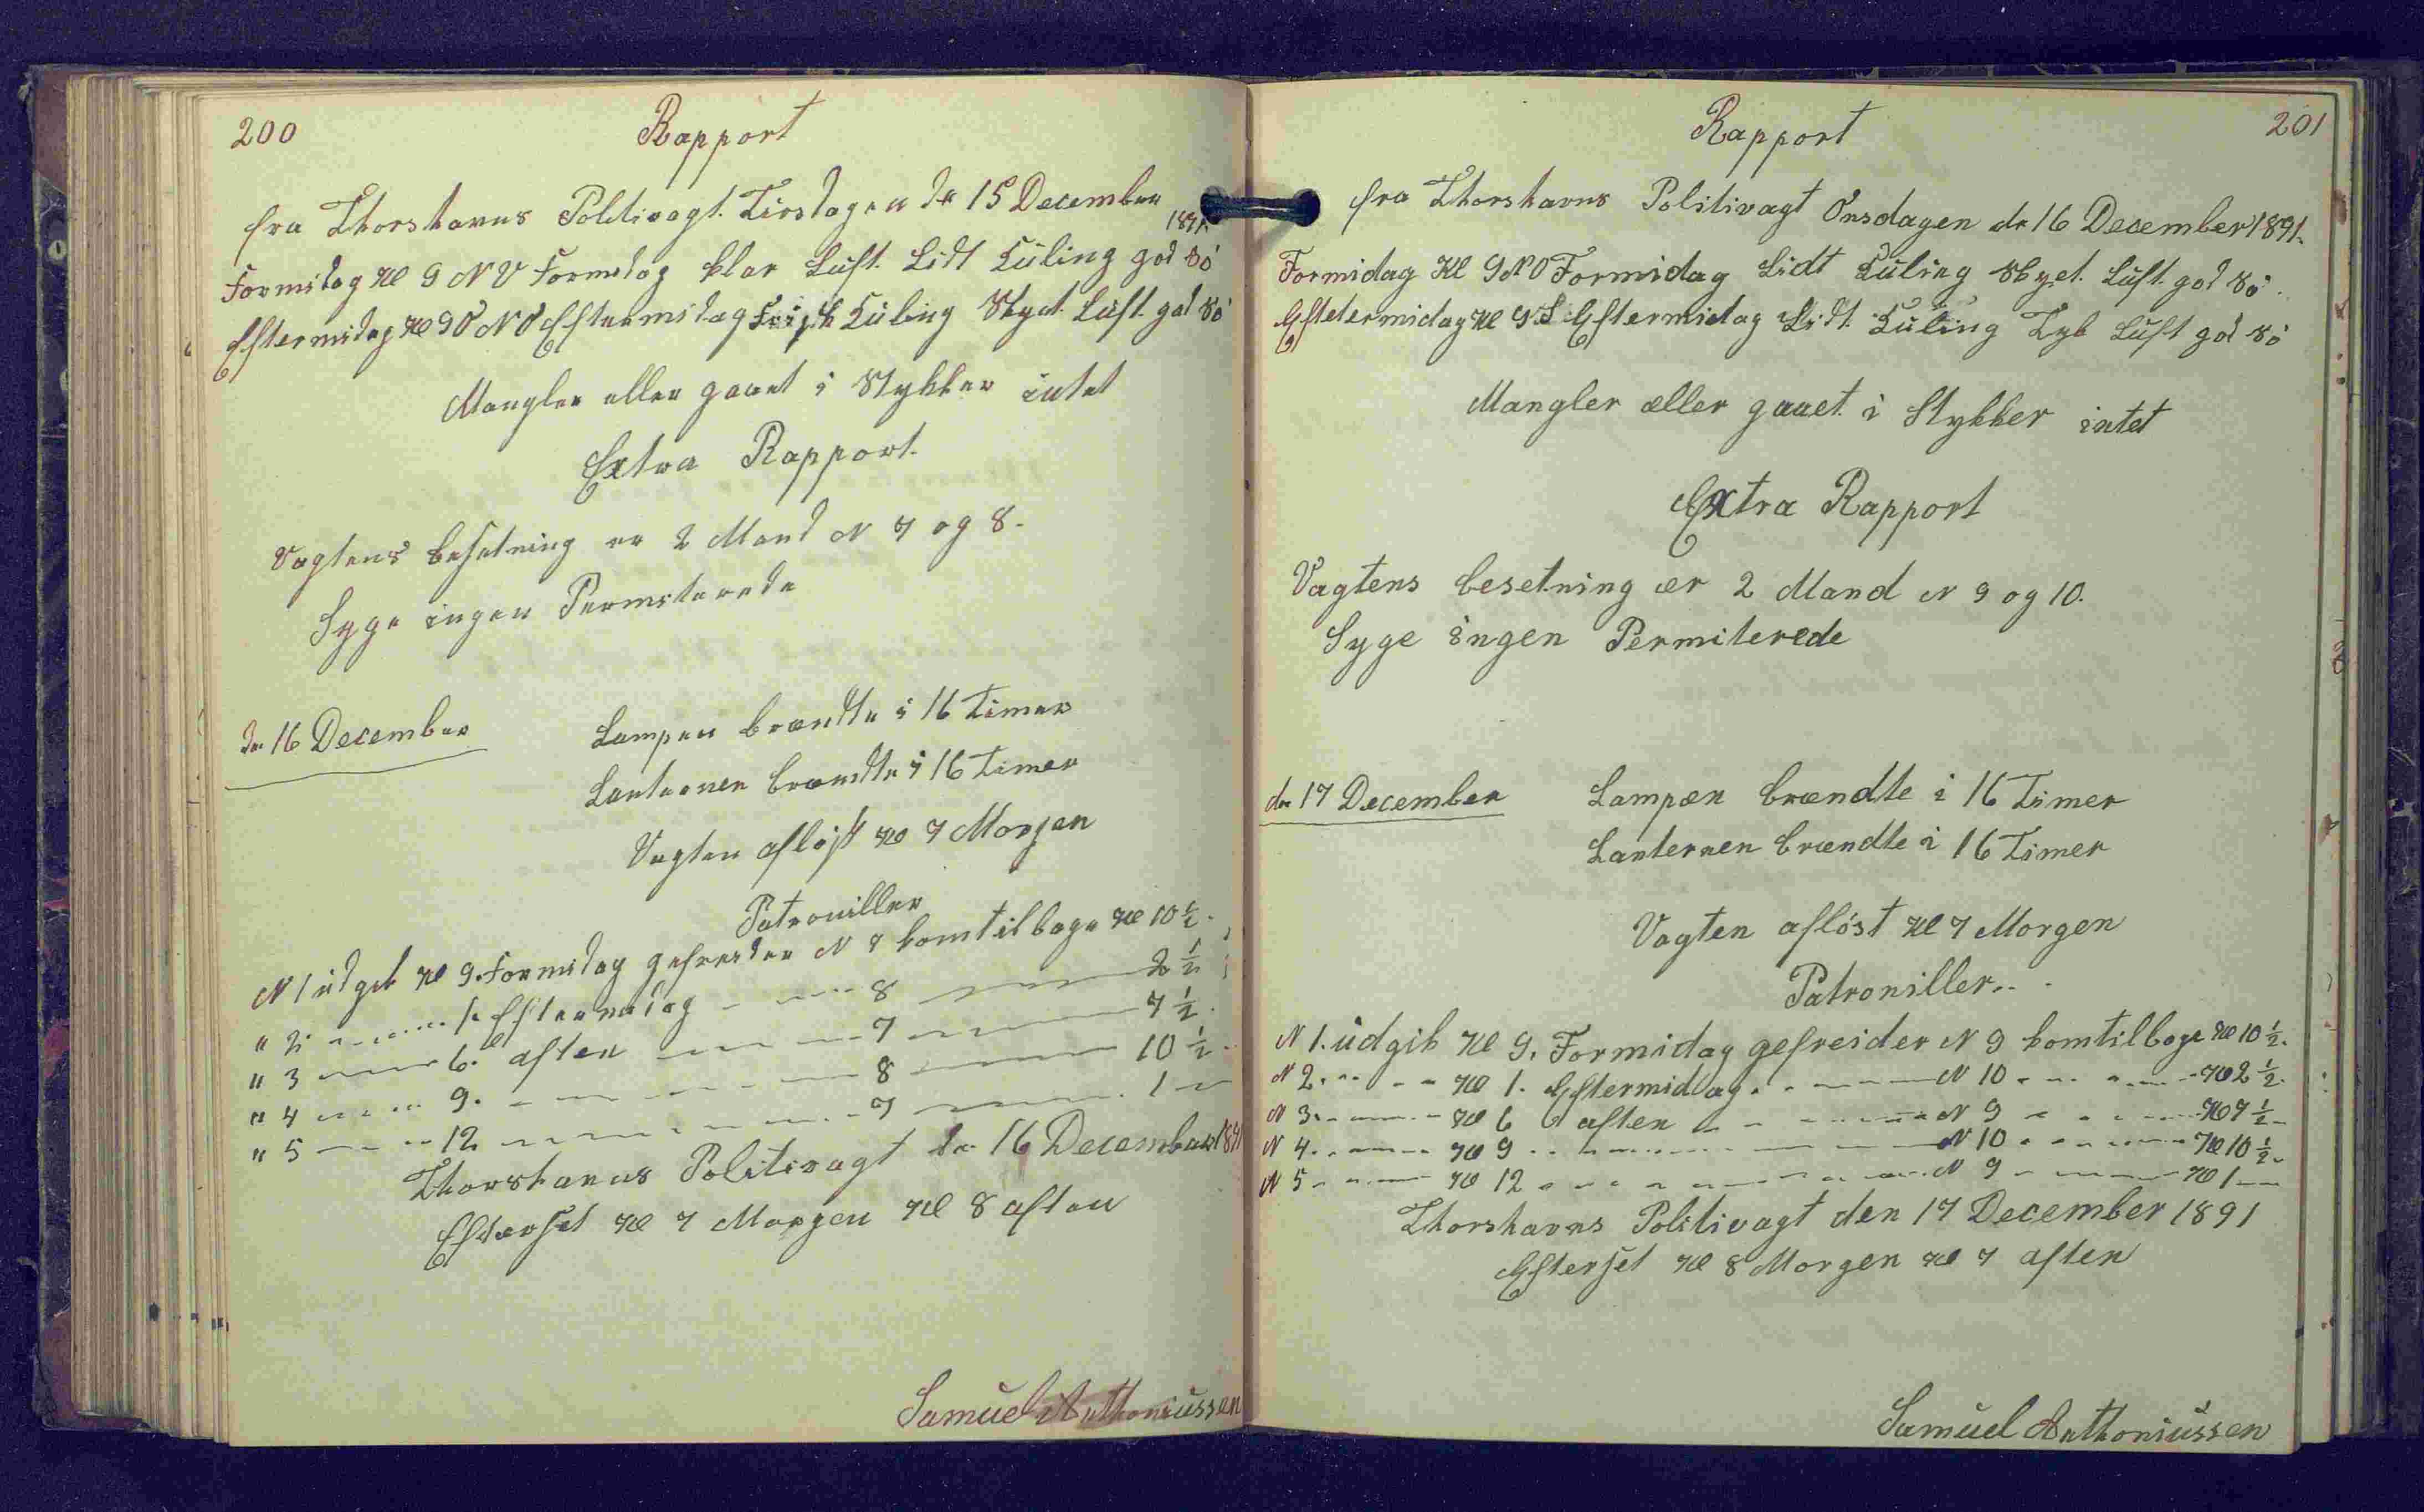 200
Rapport
fra Thorshavns Politivagt. Tirsdagen d. 15 December
1891.
Formidag Kl 9 NV Formidag klar Luft. Lidt Kúling god Sö
Eftermidag Kl 9 O N O Eftermidag Frisk Kúling Skyet. Luft. god Sö
Mangler eller gaaet i Stykker intet
Extra Rapport.
Vagtens besetning er 2 Mand N 7 og 8.
Syge ingen Permiterede
den 16 December
Lampen brændte i 16 Timer
Lanternen brændte i 16 Timer
Vagten aflöst Kl 7 Morgen
Patroniller
N 1 údgik Kl 9. Formidag gefreider N 7 komtilbage Kl 10 1/2.
" 2 1. Eftermidag 8 2 1/2
" 3 6. aften 7 7 1/2.
" 4 9. 8 10 1/2.
" 5 12 7 1
Thorshavns Politivagt den 16 December 1891
Efterset Kl 7 Morgen Kl 8 aften
Samúel Anthoniússen
201
Rapport
fra Thorshavns Politivagt Onsdagen dn 16 December 1891.
Formidag Kl 9 N O Formidag Lidt Kúling Skyet. Lúft. god Sö.
Eftetermidag Kl 9 S Eftermidag Lidt. Kúling Tyk Lúft god Sö
Mangler æller gaaet i Stykker intet
Extra Rapport
Vagtens besetning ær 2 Mand N 9 og 10.
Syge ingen Permiterede
dn 17 December
Lampæn brændte i 16 Timer
Lanternen brændte i 16 Timer
Vagten aflöst Kl 7 Morgen
Patroniller..
N 1. údgik Kl 9. Formidag gefreider N 9 komtilbage Kl 10 1/2.
N 2. Kl 1. Eftermidag N 10 Kl 2 1/2.
N 3. Kl 6 aften N 9 Kl 7 1/2
N 4. Kl 9 N 10 Kl 10 1/2.
N 5 Kl 12 N 9 Kl 1
Thorshavns Politivagt den 17 December 1891
Efterset Kl 8 Morgen Kl 7 aften
Samúel Anthoniússen